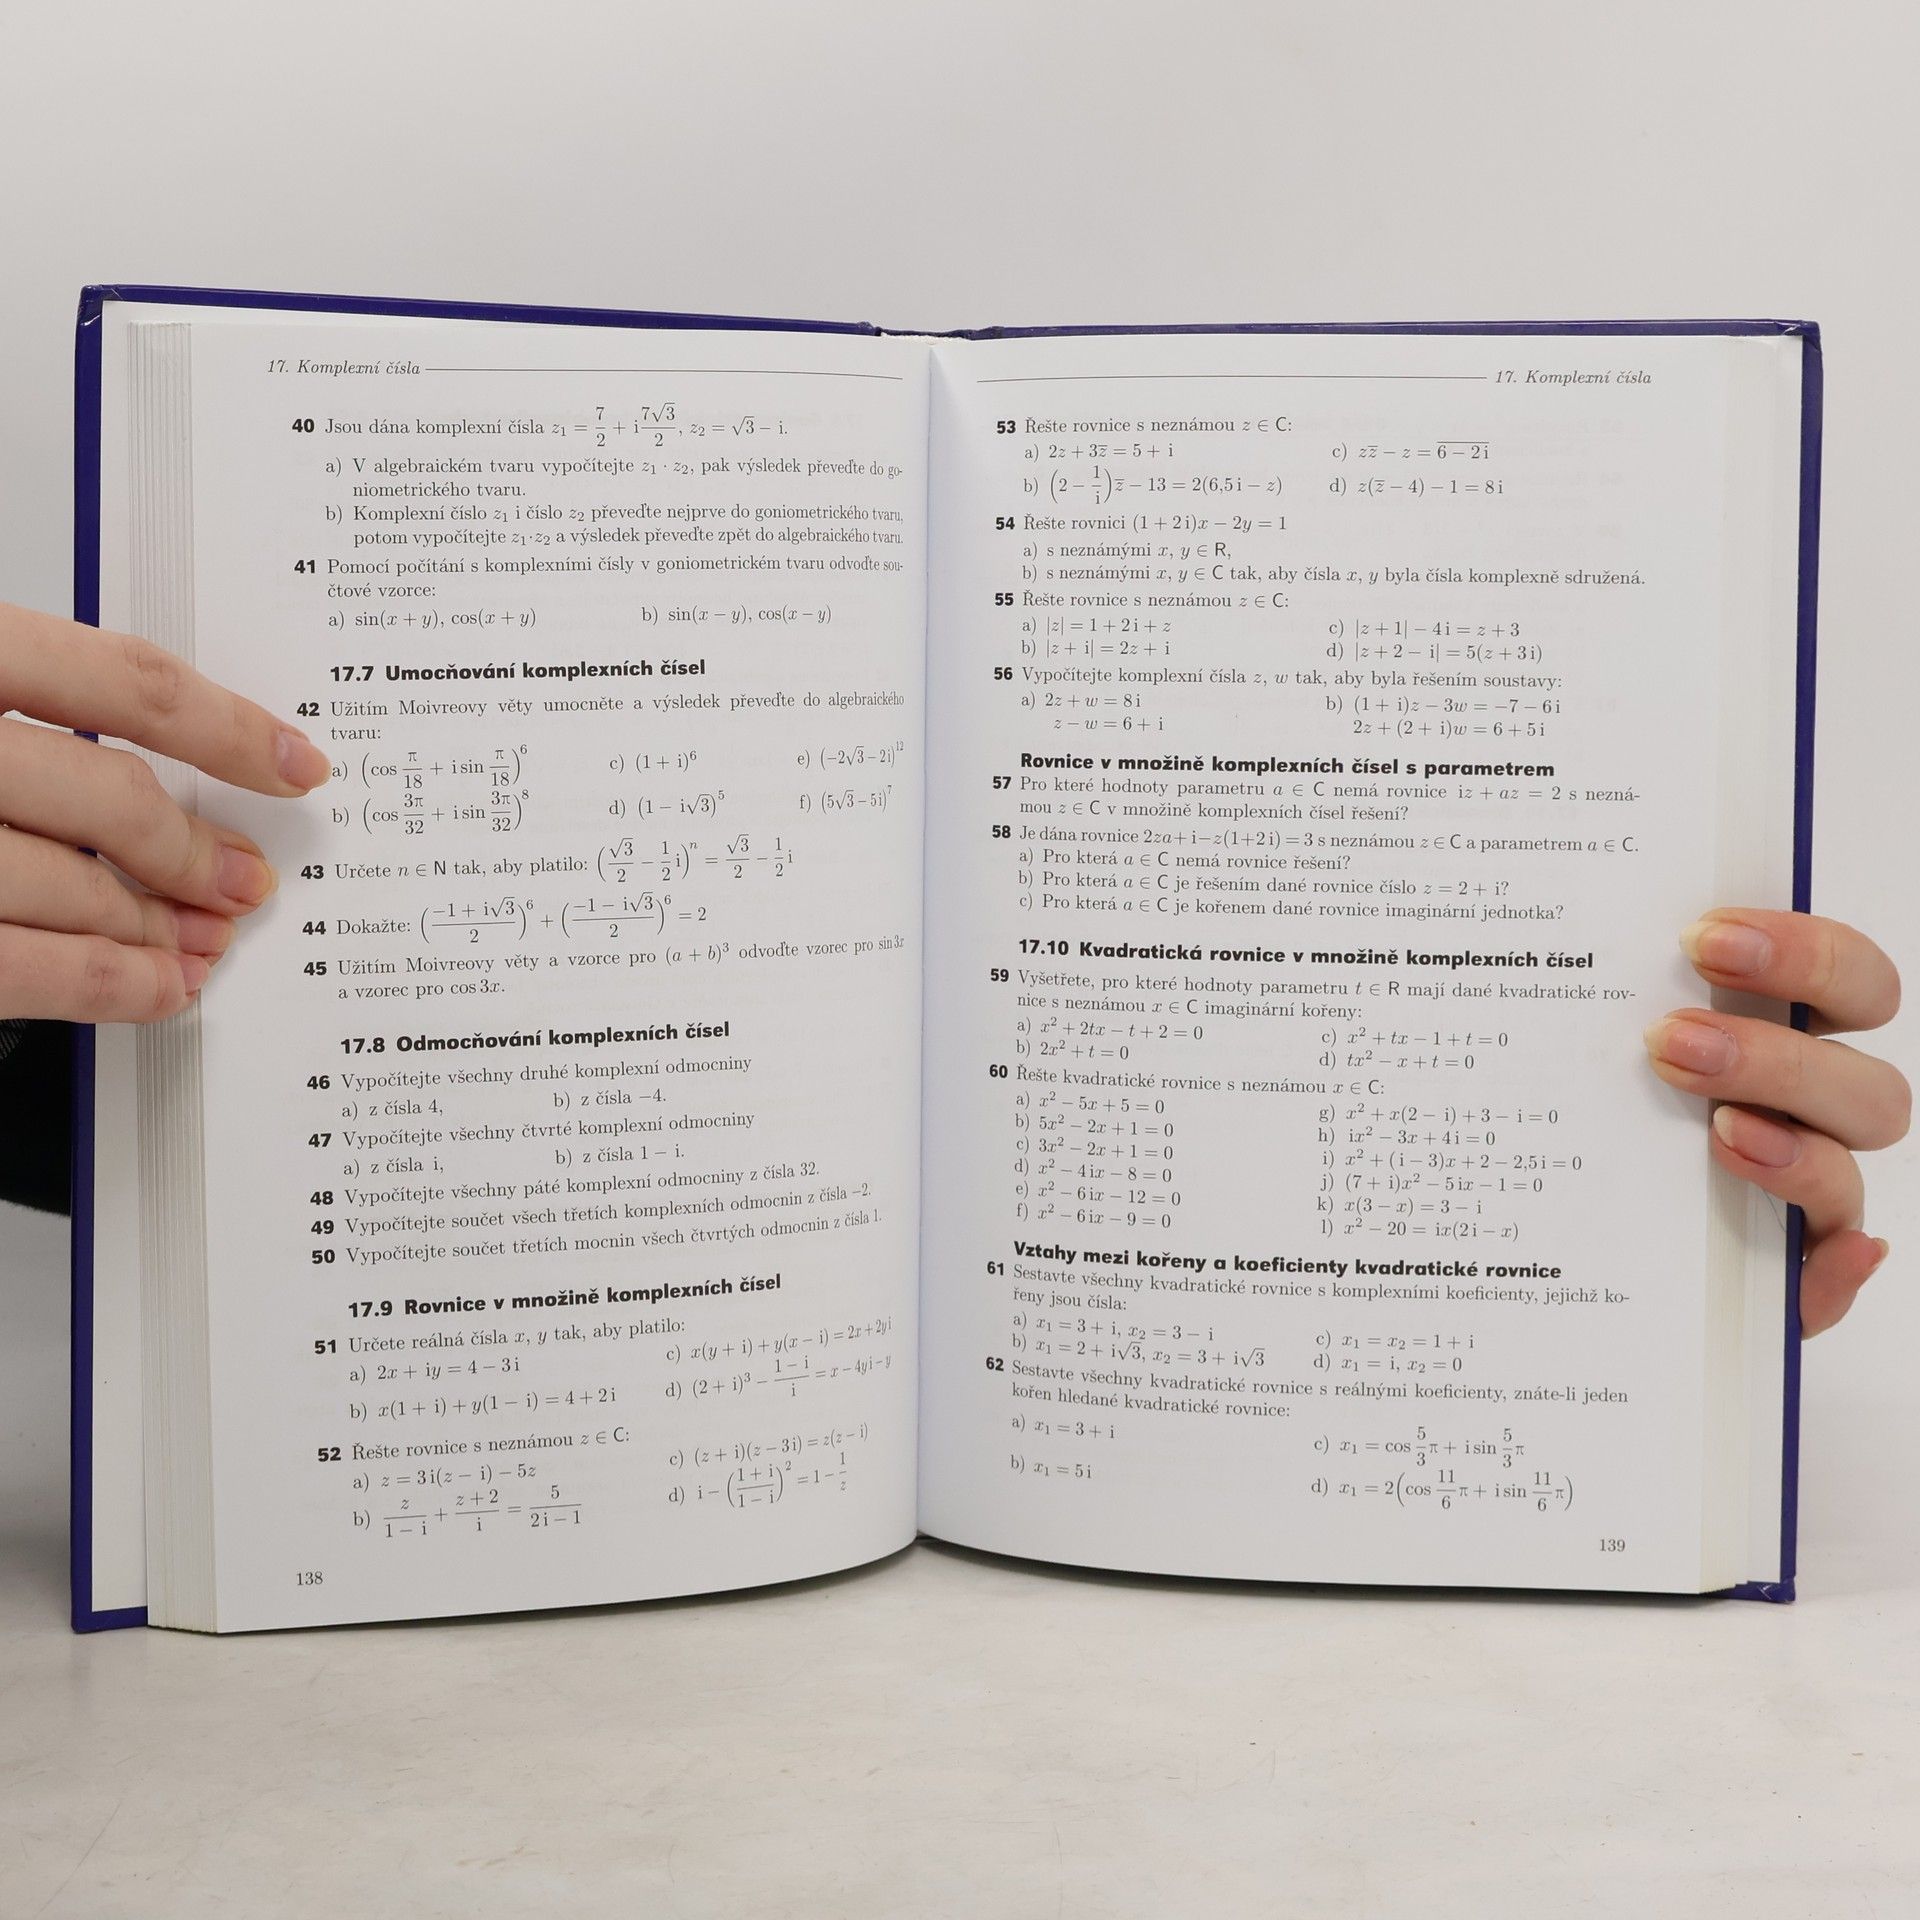 17. Komplexní čísla
40 Jsou dána komplexní čísla z₁ = 7/2 + i 7√3/2, z₂ = √3 − i.
a) V algebraickém tvaru vypočítejte z₁ · z₂, pak výsledek převeďte do go-
niometrického tvaru.
b) Komplexní číslo z₁ i číslo z₂ převeďte nejprve do goniometrického tvaru,
potom vypočítejte z₁·z₂ a výsledek převeďte zpět do algebraického tvaru.
41 Pomocí počítání s komplexními čísly v goniometrickém tvaru odvoďte sou-
čtové vzorce:
a) sin(x + y), cos(x + y) b) sin(x − y), cos(x − y)
17.7 Umocňování komplexních čísel
42 Užitím Moivreovy věty umocněte a výsledek převeďte do algebraického
tvaru:
a) (cos π/18 + i sin π/18)⁶ c) (1 + i)⁶ e) (−2√3 − 2i)¹²
b) (cos 3π/32 + i sin 3π/32)⁸ d) (1 − i√3)⁵ f) (5√3 − 5i)⁷
43 Určete n ∈ N tak, aby platilo: (√3/2 − 1/2 i)ⁿ = √3/2 − 1/2 i
44 Dokažte: ((−1 + i√3)/2)⁶ + ((−1 − i√3)/2)⁶ = 2
45 Užitím Moivreovy věty a vzorce pro (a + b)³ odvoďte vzorec pro sin 3x
a vzorec pro cos 3x.
17.8 Odmocňování komplexních čísel
46 Vypočítejte všechny druhé komplexní odmocniny
a) z čísla 4, b) z čísla −4.
47 Vypočítejte všechny čtvrté komplexní odmocniny
a) z čísla i, b) z čísla 1 − i.
48 Vypočítejte všechny páté komplexní odmocniny z čísla 32.
49 Vypočítejte součet všech třetích komplexních odmocnin z čísla −2.
50 Vypočítejte součet třetích mocnin všech čtvrtých odmocnin z čísla 1.
17.9 Rovnice v množině komplexních čísel
51 Určete reálná čísla x, y tak, aby platilo:
a) 2x + iy = 4 − 3i c) x(y + i) + y(x − i) = 2x + 2yi
b) x(1 + i) + y(1 − i) = 4 + 2i d) (2 + i)³ − (1 − i)/i = x − 4yi − y
52 Řešte rovnice s neznámou z ∈ C:
a) z = 3i(z − i) − 5z c) (z + i)(z − 3i) = z(z − i)
b) z/(1 − i) + (z + 2)/i = 5/(2i − 1) d) i − ((1 + i)/(1 − i))² = 1 − 1/z
138
17. Komplexní čísla
53 Řešte rovnice s neznámou z ∈ C:
a) 2z + 3z̅ = 5 + i c) zz̅ − z = 6̅ ̅−̅ ̅2̅i̅
b) (2 − 1/i)z̅ − 13 = 2(6,5i − z) d) z(z̅ − 4) − 1 = 8i
54 Řešte rovnici (1 + 2i)x − 2y = 1
a) s neznámými x, y ∈ R,
b) s neznámými x, y ∈ C tak, aby čísla x, y byla čísla komplexně sdružená.
55 Řešte rovnice s neznámou z ∈ C:
a) |z| = 1 + 2i + z c) |z + 1| − 4i = z + 3
b) |z + i| = 2z + i d) |z + 2 − i| = 5(z + 3i)
56 Vypočítejte komplexní čísla z, w tak, aby byla řešením soustavy:
a) 2z + w = 8i b) (1 + i)z − 3w = −7 − 6i
z − w = 6 + i 2z + (2 + i)w = 6 + 5i
Rovnice v množině komplexních čísel s parametrem
57 Pro které hodnoty parametru a ∈ C nemá rovnice iz + az = 2 s nezná-
mou z ∈ C v množině komplexních čísel řešení?
58 Je dána rovnice 2za + i − z(1 + 2i) = 3 s neznámou z ∈ C a parametrem a ∈ C.
a) Pro která a ∈ C nemá rovnice řešení?
b) Pro která a ∈ C je řešením dané rovnice číslo z = 2 + i?
c) Pro která a ∈ C je kořenem dané rovnice imaginární jednotka?
17.10 Kvadratická rovnice v množině komplexních čísel
59 Vyšetřete, pro které hodnoty parametru t ∈ R mají dané kvadratické rov-
nice s neznámou x ∈ C imaginární kořeny:
a) x² + 2tx − t + 2 = 0 c) x² + tx − 1 + t = 0
b) 2x² + t = 0 d) tx² − x + t = 0
60 Řešte kvadratické rovnice s neznámou x ∈ C:
a) x² − 5x + 5 = 0 g) x² + x(2 − i) + 3 − i = 0
b) 5x² − 2x + 1 = 0 h) ix² − 3x + 4i = 0
c) 3x² − 2x + 1 = 0 i) x² + (i − 3)x + 2 − 2,5i = 0
d) x² − 4ix − 8 = 0 j) (7 + i)x² − 5ix − 1 = 0
e) x² − 6ix − 12 = 0 k) x(3 − x) = 3 − i
f) x² − 6ix − 9 = 0 l) x² − 20 = ix(2i − x)
Vztahy mezi kořeny a koeficienty kvadratické rovnice
61 Sestavte všechny kvadratické rovnice s komplexními koeficienty, jejichž ko-
řeny jsou čísla:
a) x₁ = 3 + i, x₂ = 3 − i c) x₁ = x₂ = 1 + i
b) x₁ = 2 + i√3, x₂ = 3 + i√3 d) x₁ = i, x₂ = 0
62 Sestavte všechny kvadratické rovnice s reálnými koeficienty, znáte-li jeden
kořen hledané kvadratické rovnice:
a) x₁ = 3 + i c) x₁ = cos 5/3 π + i sin 5/3 π
b) x₁ = 5i d) x₁ = 2(cos 11/6 π + i sin 11/6 π)
139